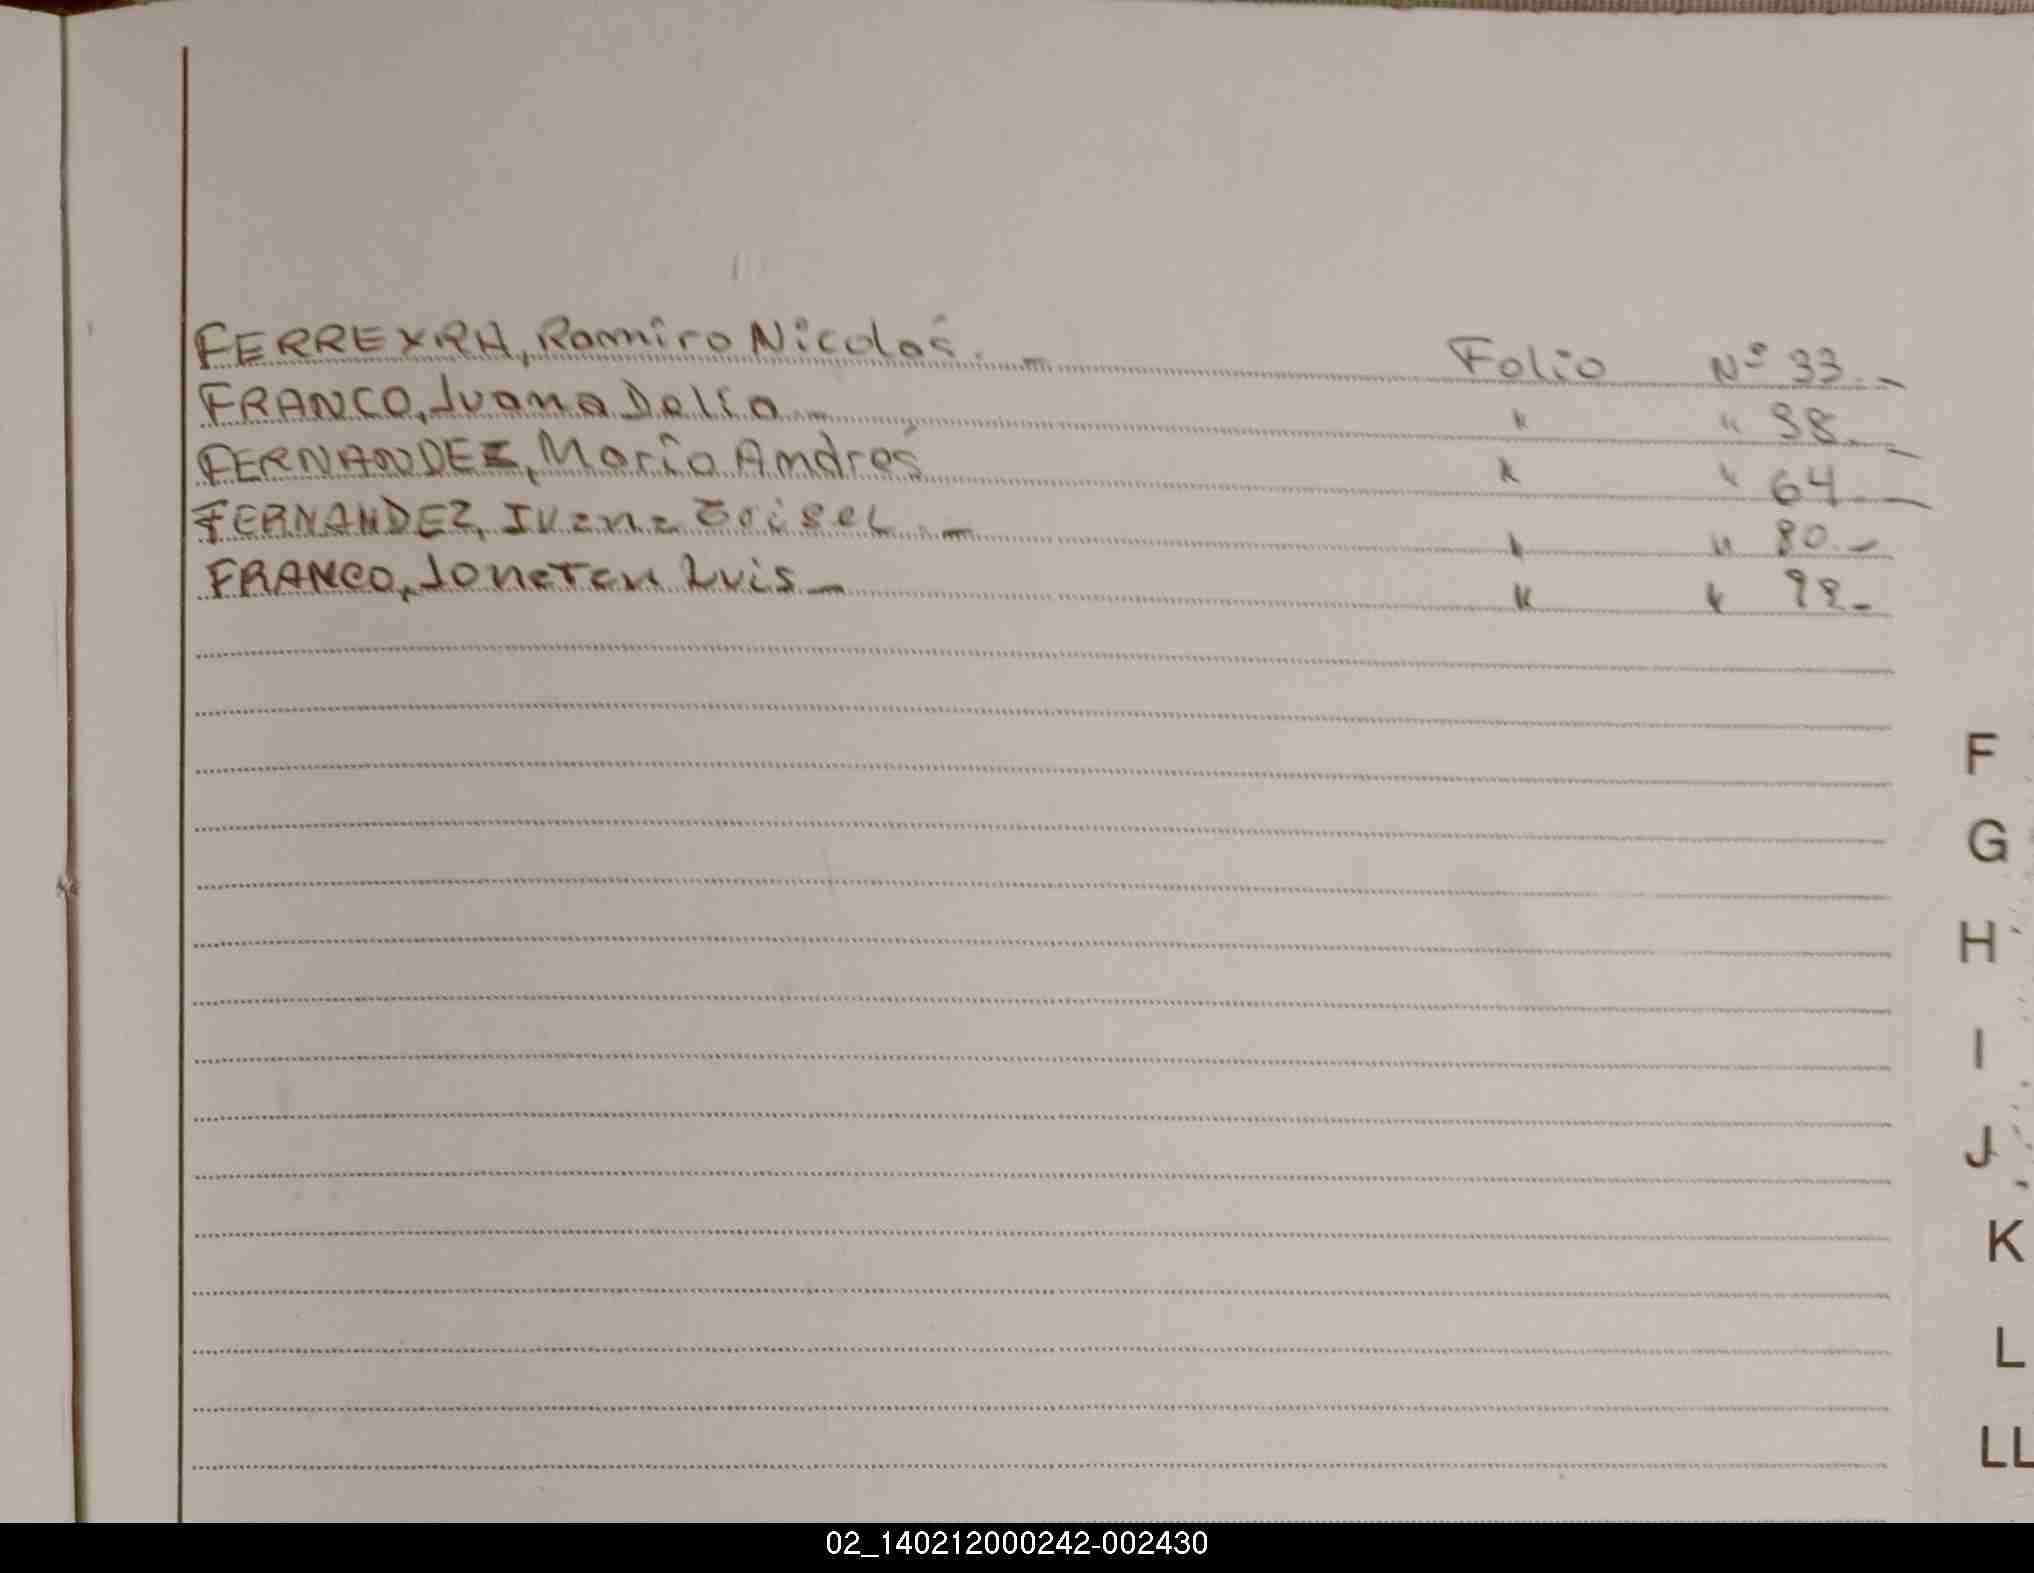 FERREYRA, Ramiro Nicolás.- Folio Nº 33.-
FRANCO, Juana Delia.- " " 38.-
FERNANDEZ, Mario Andrés " " 64.-
FERNANDEZ, Ivana Grisel.- " " 80.-
FRANCO, Jonatan Luis- " " 98-
F
G
H
I
J
K
L
LL
02_140212000242-002430